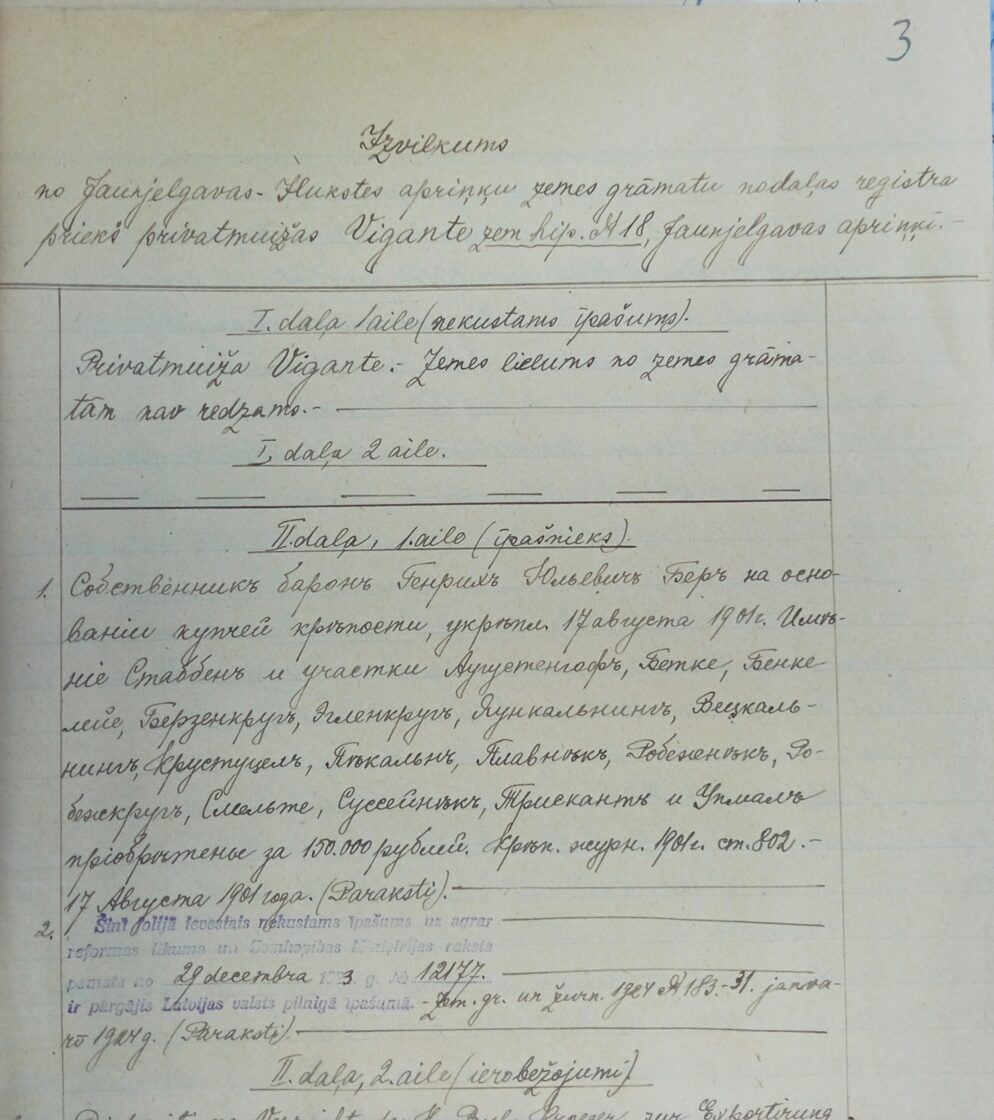 3
Izvilkums
no Jaunjelgavas-Ilukstes apriņķu zemes grāmatu nodaļas reģistra
priekš privatmuižas Vigante zem hip. № 18, Jaunjelgavas apriņķī.-
I. daļa 1 aile (nekustams īpašums).
Privatmuiža Vigante.- Zemes lielums no zemes grāma-
tām nav redzams.-
I. daļa 2 aile.
II. daļa, 1. aile (īpašnieks).
1. Собственникъ баронъ Генрихъ Юльевичъ Беръ на осно-
ваніи купчей крѣпости, укрѣпл. 17 августа 1901 г. Имѣ-
ніе Стаббенъ и участки Аугустенгофъ, Бетке, Бенке-
лейе, Берзенкругъ, Эгленкругъ, Яункальнингъ, Вецкаль-
нингъ, Крустуцелъ, Пѣкальнъ, Плавнѣкъ, Робеженѣкъ, Ро-
бежкругъ, Смельте, Суссейнѣкъ, Трискантъ и Упмалъ
пріобрѣтены за 150.000 рублей. Крѣп. журн. 1901 г. ст. 802.-
17 Августа 1901 года. (Paraksti).
2. Šinī folijā ievestais nekustams īpašums uz agrar
reformas likuma un Zemkopības Ministrijas raksta
pamata no 29 decembra 1923 g. № 12177.
ir pārgājis Latvijas valsts pilnīgā īpašumā. - Zem. gr. un žurn. 1924 № 183.-31. janva-
rī 1924 g. (Paraksti).
II. daļa, 2. aile (ierobežojumi)
zur Exkortirung